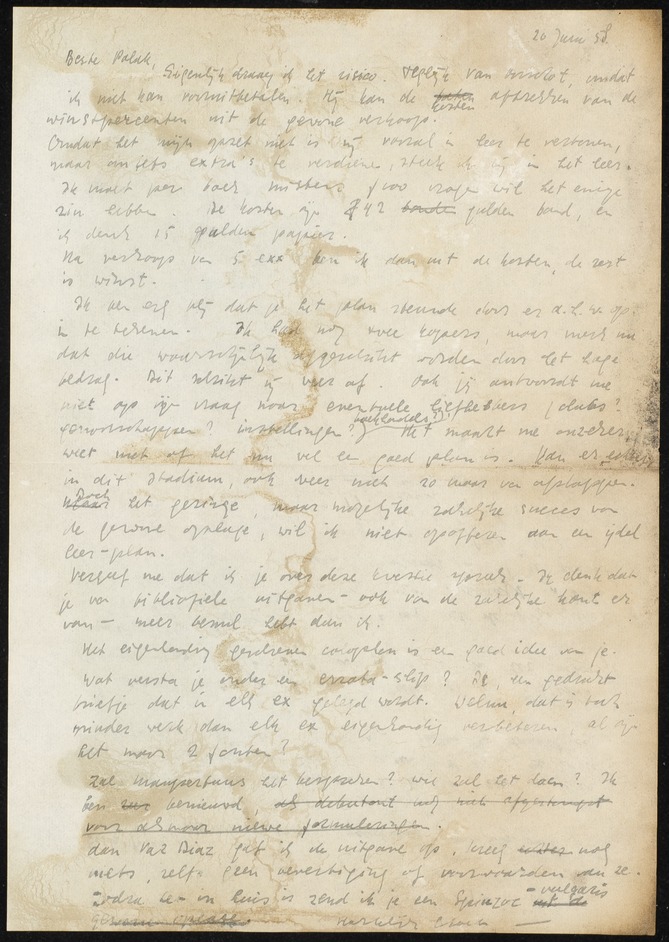 20 Juni 58.
Beste Polak,
Eigenlijk draag ik het risico. van Oorschot, omdat
ik niet kan vooruitbetalen. Hij kan de kosten aftrekken van de
winstpercenten uit de gewone verkoop.
Omdat het mijn opzet niet is mij vooral in leer te vertonen,
maar om iets extra's te verdienen, steek ik mij in het leer.
Ik moet per boek minstens f 100 vragen wil het enige
zin hebben. De kosten zijn f 42 gulden band, en
ik denk 15 gulden papier.
Na verkoop van 5 exx ben ik dan uit de kosten, de rest
is winst.
Ik ben erg blij dat je het plan steunde door er a.h.w. op
in te tekenen. Ik had nog twee kopers, maar merk nu
dat die waarschijnlijk afgeschrikt worden door het hoge
bedrag. Dit schrikt mij weer af. Ook jij antwoordt me
niet op mijn vraag naar eventuele liefhebbers (clubs?
genootschappen? instellingen? boekhandels?) Het maakt me onzeker,
weet niet of het nu wel een goed plan is. Kan er echter
in dit stadium, ook weer niet zo maar van afstappen.
Doch het geringe, maar mogelijke zakelijke succes van
de gewone oplage, wil ik niet opofferen aan een ijdel
leer-plan.
Vergeef me dat ik je over deze kwestie spreek. Ik denk dat
je van bibliofiele uitgaven - ook van de zakelijke kant er
van - meer benul hebt dan ik.
Het eigenhandig geschreven colophon is een goed idee van je.
Wat versta je onder een errata-slip? Is een gedrukt
briefje dat in elk ex gelegd wordt. Welnu, dat is toch
minder werk dan elk ex eigenhandig verbeteren, al zijn
het maar 2 fouten?
Zal Maupertuus het bespreken? wie zal het doen? Ik
ben benieuwd, als debutant nog niet afgestompt
voor alsmaar nieuwe formuleringen.
Aan Vaz Diaz gaf ik de uitgave op, kreeg nog
niets, zelfs geen bevestiging of voorwaarden van ze.
Zodra in huis is zend ik je een Spinroc vulgaris
Hartelijk